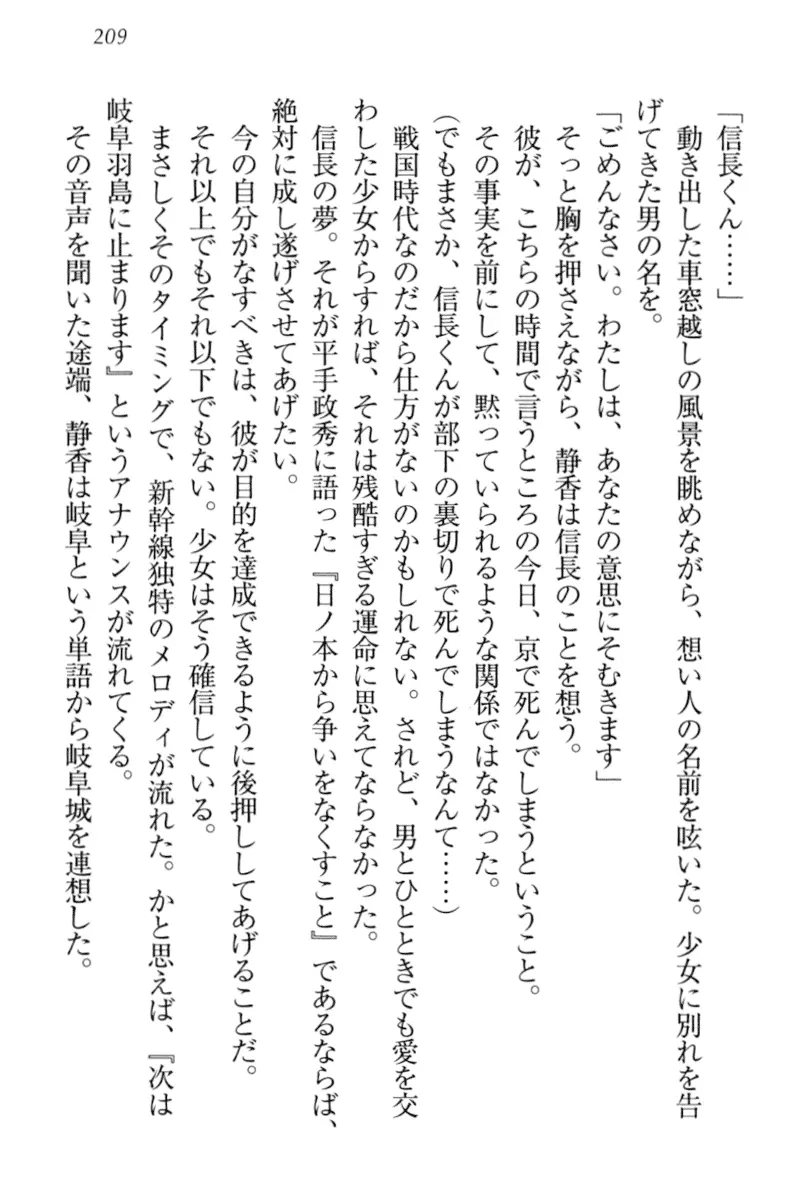 209
「信長くん……」
動き出した車窓越しの風景を眺めながら、想い人の名前を呟いた。少女に別れを告
げてきた男の名を。
「ごめんなさい。わたしは、あなたの意思にそむきます」
そっと胸を押さえながら、静香は信長のことを想う。
彼が、こちらの時間で言うところの今日、京で死んでしまうということ。
その事実を前にして、黙っていられるような関係ではなかった。
(でもまさか、信長くんが部下の裏切りで死んでしまうなんて……)
戦国時代なのだから仕方がないのかもしれない。されど、男とひとときでも愛を交
わした少女からすれば、それは残酷すぎる運命に思えてならなかった。
信長の夢。それが平手政秀に語った『日ノ本から争いをなくすこと』であるならば、
絶対に成し遂げさせてあげたい。
今の自分がなすべきは、彼が目的を達成できるように後押ししてあげることだ。
それ以上でもそれ以下でもない。少女はそう確信している。
まさしくそのタイミングで、新幹線独特のメロディが流れた。かと思えば、『次は
岐阜羽島に止まります』というアナウンスが流れてくる。
その音声を聞いた途端、静香は岐阜という単語から岐阜城を連想した。